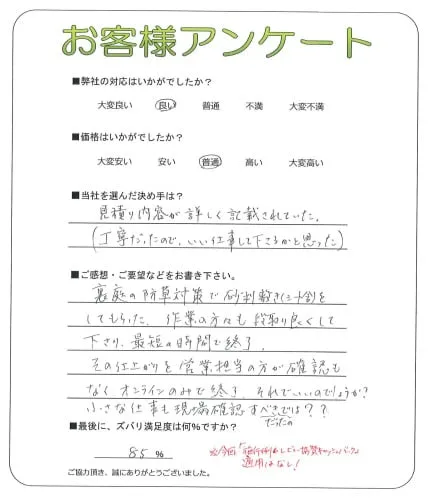 お客様アンケート
■弊社の対応はいかがでしたか?
大変良い 良い 普通 不満 大変不満
■価格はいかがでしたか?
大変安い 安い 普通 高い 大変高い
■当社を選んだ決め手は?
見積り内容が詳しく記載されていた。
(丁寧だったので、いい仕事して下さるかと思った)
■ご感想・ご要望などをお書き下さい。
裏庭の防草対策で砂利敷き(シート割)を
してもらった。作業の方々も段取り良くして
下さり、最短の時間で終了。
その仕上がりを営業担当の方が確認も
なくオンラインのみで終了。それでいいのでしょうか?
小さな仕事も現場確認すべきでは??
だったの
■最後に、ズバリ満足度は何%ですか?
85 %
※今回「
適用はなし!
ご協力頂き、誠にありがとうございました。